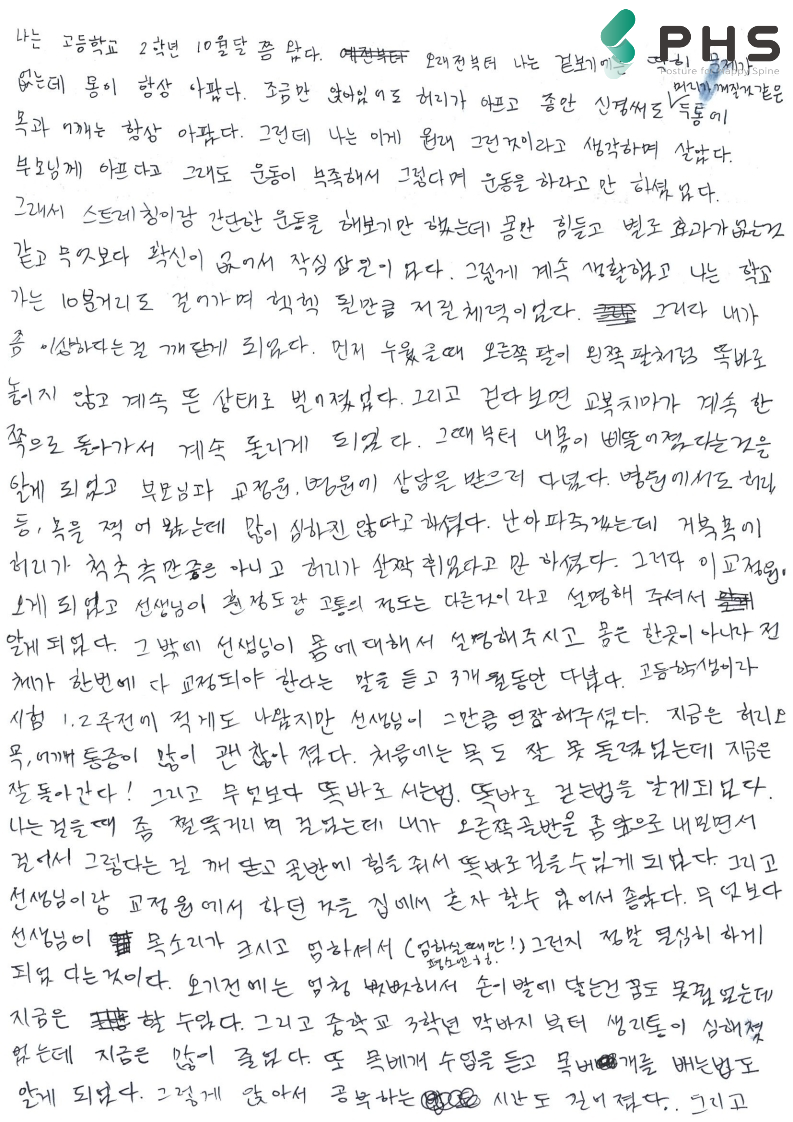 PHS
Posture for Happy Spine
나는 고등학교 2학년 10월달 쯤 왔다. 오래전부터 나는 겉보기에는 딱히 문제가
없는데 몸이 항상 아팠다. 조금만 앉아있어도 허리가 아프고 좀만 신경써도 머리가 깨질것 같은 두통에
목과 어깨는 항상 아팠다. 그런데 나는 이게 원래 그런것이라고 생각하며 살았다.
부모님께 아프다고 그래도 운동이 부족해서 그렇다며 운동을 하라고만 하셨었다.
그래서 스트레칭이랑 간단한 운동을 해보기만 했는데 몸만 힘들고 별로 효과가 없는것
같고 무엇보다 확신이 없어서 작심삼일이었다. 그렇게 계속 생활했고 나는 학교
가는 10분거리도 걸어가며 헥헥 될만큼 저질체력이었다. 그러다 내가
좀 이상하다는걸 깨닫게 되었다. 먼저 누웠을때 오른쪽팔이 왼쪽팔처럼 똑바로
놓이지 않고 계속 뜬 상태로 벌어졌었다. 그리고 걷다보면 교복치마가 계속 한
쪽으로 돌아가서 계속 돌리게 되었다. 그때부터 내몸이 삐뚤어졌다는것을
알게 되었고 부모님과 교정원, 병원에 상담을 받으러 다녔다. 병원에서도 허리,
등, 목을 찍어 봤는데 많이 심하진 않다고 하셨다. 난 아파죽겠는데 거북목에
허리가 척추측만증은 아니고 허리가 살짝 휘었다고만 하셨다. 그러다 이 교정원에
오게 되었고 선생님이 휜정도랑 고통의 정도는 다른것이라고 설명해 주셔서
알게 되었다. 그 밖에 선생님이 몸에 대해서 설명해주시고 몸은 한곳이 아니라 전
체가 한번에 다 교정되야 한다는 말을 듣고 3개월동안 다녔다. 고등학생이라
시험 1,2주전에 적게도 나왔지만 선생님이 그만큼 연장해주셨다. 지금은 허리와
목, 어깨 통증이 많이 괜찮아졌다. 처음에는 목도 잘 못 돌렸었는데 지금은
잘 돌아간다! 그리고 무엇보다 똑바로 서는법, 똑바로 걷는법을 알게되었다.
나는 걸을때 좀 쩔뚝거리며 걸었는데 내가 오른쪽골반을 좀 앞으로 내밀면서
걸어서 그렇다는 걸 깨닫고 골반에 힘을 줘서 똑바로 걸을수있게 되었다. 그리고
선생님이랑 교정원에서 하던 것을 집에서 혼자 할수 있어서 좋았다. 무엇보다
선생님이 목소리가 크시고 엄하셔서 (엄하실때만!) 평소엔 ㅎㅎ. 그런지 정말 열심히 하게
되었다는것이다. 오기전에는 엄청 뻣뻣해서 손이 발에 닿는건 꿈도 못꿨었는데
지금은 할 수있다. 그리고 중학교 3학년 막바지부터 생리통이 심해졌
었는데 지금은 많이 줄었다. 또 목베개 수업을 듣고 목베개를 베는법도
알게 되었다. 그렇게 앉아서 공부하는 시간도 길어졌다. 그리고